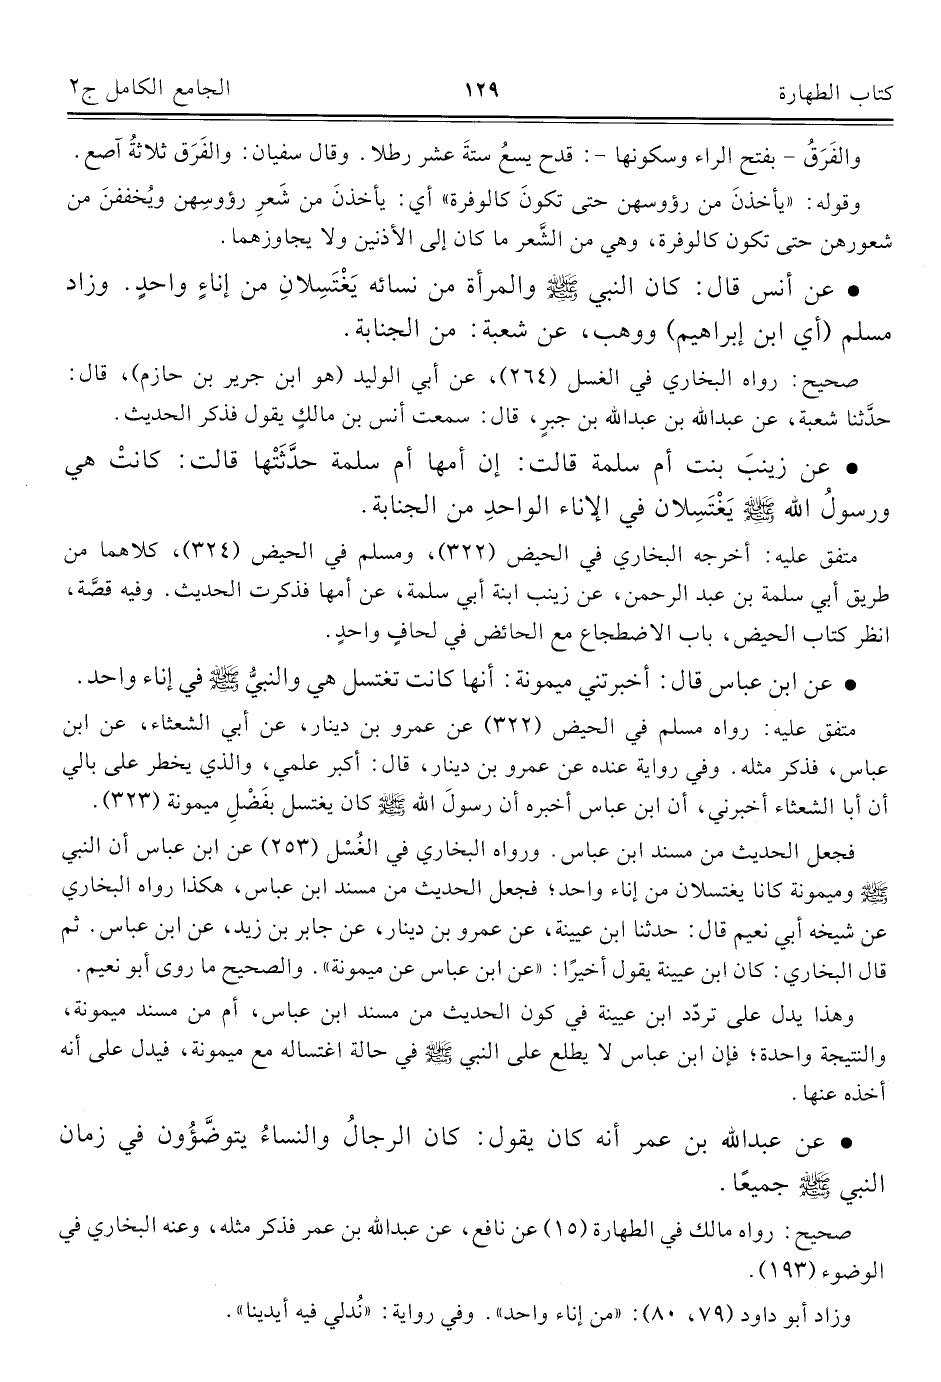 كتاب الطهارة ١٢٩ الجامع الكامل ج٢
والفَرَقُ - بفتح الراء وسكونها -: قدح يسعُ ستةَ عشر رطلا. وقال سفيان: والفَرَق ثلاثةُ آصع.
وقوله: «يأخذنَ من رؤوسهن حتى تكونَ كالوفرة» أي: يأخذنَ من شَعرِ رؤوسِهن ويُخففنَ من
شعورهن حتى تكون كالوفرة، وهي من الشَّعر ما كان إلى الأذنين ولا يجاوزهما.
• عن أنس قال: كان النبي ﷺ والمرأة من نسائه يَغْتَسِلانِ من إناءٍ واحدٍ. وزاد
مسلم (أي ابن إبراهيم) ووهب، عن شعبة: من الجنابة.
صحيح: رواه البخاري في الغسل (٢٦٤)، عن أبي الوليد (هو ابن جرير بن حازم)، قال:
حدَّثنا شعبة، عن عبدالله بن عبدالله بن جبرٍ، قال: سمعت أنس بن مالكٍ يقول فذكر الحديث.
• عن زينبَ بنت أم سلمة قالت: إن أمها أم سلمة حدَّثَتْها قالت: كانتْ هي
ورسولُ الله ﷺ يَغْتَسِلان في الإناء الواحدِ من الجنابة.
متفق عليه: أخرجه البخاري في الحيض (٣٢٢)، ومسلم في الحيض (٣٢٤)، كلاهما من
طريق أبي سلمة بن عبد الرحمن، عن زينب ابنة أبي سلمة، عن أمها فذكرت الحديث. وفيه قصَّة،
انظر كتاب الحيض، باب الاضطجاع مع الحائض في لحافٍ واحدٍ.
• عن ابن عباس قال: أخبرتني ميمونة: أنها كانت تغتسل هي والنبيُّ ﷺ في إناء واحد.
متفق عليه: رواه مسلم في الحيض (٣٢٢) عن عمرو بن دينار، عن أبي الشعثاء، عن ابن
عباس، فذكر مثله. وفي رواية عنده عن عمرو بن دينار، قال: أكبر علمي، والذي يخطر على بالي
أن أبا الشعثاء أخبرني، أن ابن عباس أخبره أن رسولَ الله ﷺ كان يغتسل بفَضْلِ ميمونة (٣٢٣).
فجعل الحديث من مسند ابن عباس. ورواه البخاري في الغُسْل (٢٥٣) عن ابن عباس أن النبي
ﷺ وميمونة كانا يغتسلان من إناء واحد؛ فجعل الحديث من مسند ابن عباس، هكذا رواه البخاري
عن شيخه أبي نعيم قال: حدثنا ابن عيينة، عن عمرو بن دينار، عن جابر بن زيد، عن ابن عباس. ثم
قال البخاري: كان ابن عيينة يقول أخيرًا: «عن ابن عباس عن ميمونة». والصحيح ما روى أبو نعيم.
وهذا يدل على تردّد ابن عيينة في كون الحديث من مسند ابن عباس، أم من مسند ميمونة،
والنتيجة واحدة؛ فإن ابن عباس لا يطلع على النبي ﷺ في حالة اغتساله مع ميمونة، فيدل على أنه
أخذه عنها.
• عن عبدالله بن عمر أنه كان يقول: كان الرجالُ والنساءُ يتوضَّؤُون في زمان
النبي ﷺ جميعًا.
صحيح: رواه مالك في الطهارة (١٥) عن نافع، عن عبدالله بن عمر فذكر مثله، وعنه البخاري في
الوضوء (١٩٣).
وزاد أبو داود (٧٩، ٨٠): «من إناء واحد». وفي رواية: «نُدلي فيه أيدينا».